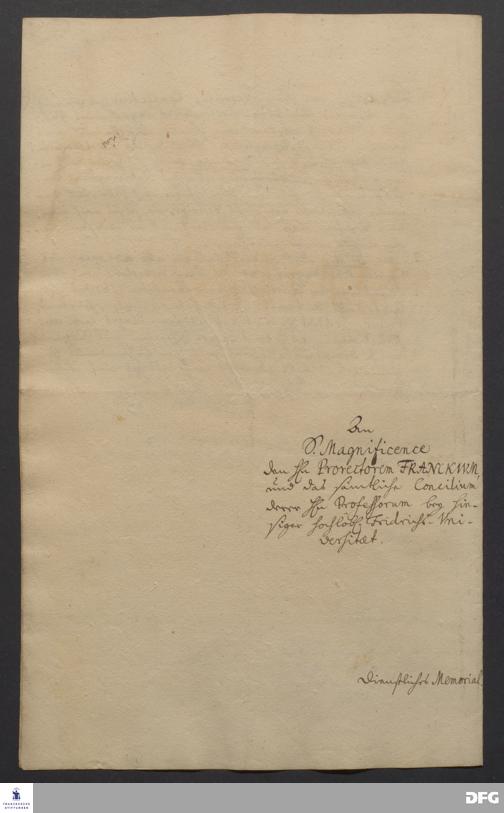 An
S. Magnificence
den Hn Prorectorem FRANCKIUM,
und das sämtliche Concilium
derer Hn Professorum bey hie-
siger hochlöbl. Fridrichs-Uni-
versitæt.
Dienstliches Memorial
FRANCKESCHE
STIFTUNGEN
DFG